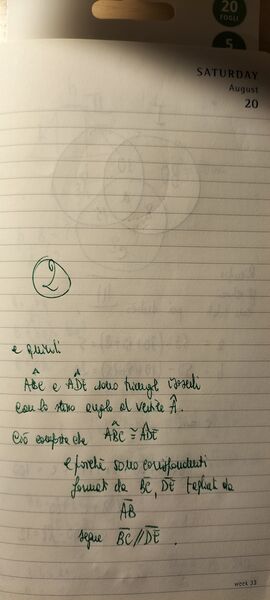 20
FOGLI
5
SATURDAY
August
20
2
e quindi
ABC e ADE sono triangoli isosceli
con lo stesso angolo al vertice Â.
Ciò comporta che ABC ≅ ADE
e poiché sono corrispondenti
formati da BC, DE tagliati da
AB
segue BC // DE.
week 33